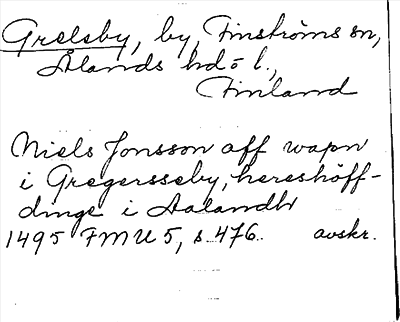 Grelsby, by, Finströms sn,
Ålands hd o l.,
Finland
Niels Jonsson aff wapn
i Gregersseby, hereshöff-
dinge i Aalandh
1495 FMU 5, s. 476. avskr.